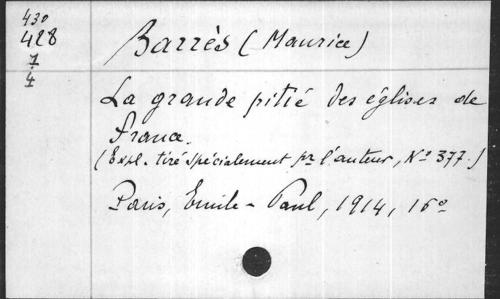 430
428
1
4
Barrès (Maurice)
La grande pitié des églises de
France.
(Expl. tiré spécialement pr l'auteur, No 377.)
Paris, Emile-Paul, 1914, 16o